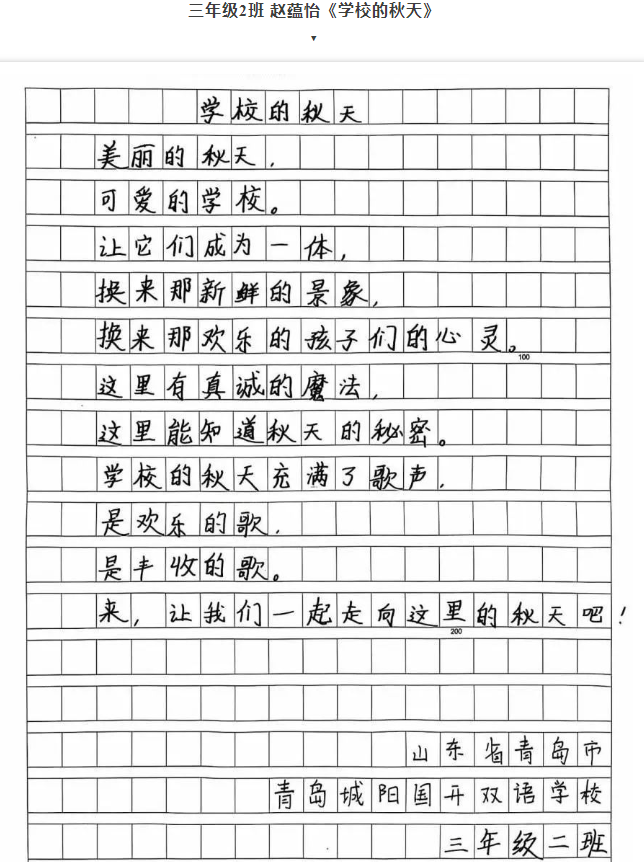 三年级2班 赵蕴怡《学校的秋天》
▼
学校的秋天
美丽的秋天，
可爱的学校。
让它们成为一体，
换来那新鲜的景象，
换来那欢乐的孩子们的心灵。
100
这里有真诚的魔法，
这里能知道秋天的秘密。
学校的秋天充满了歌声，
是欢乐的歌，
是丰收的歌。
来，让我们一起走向这里的秋天吧！
200
山东省青岛市
青岛城阳国开双语学校
三年级二班